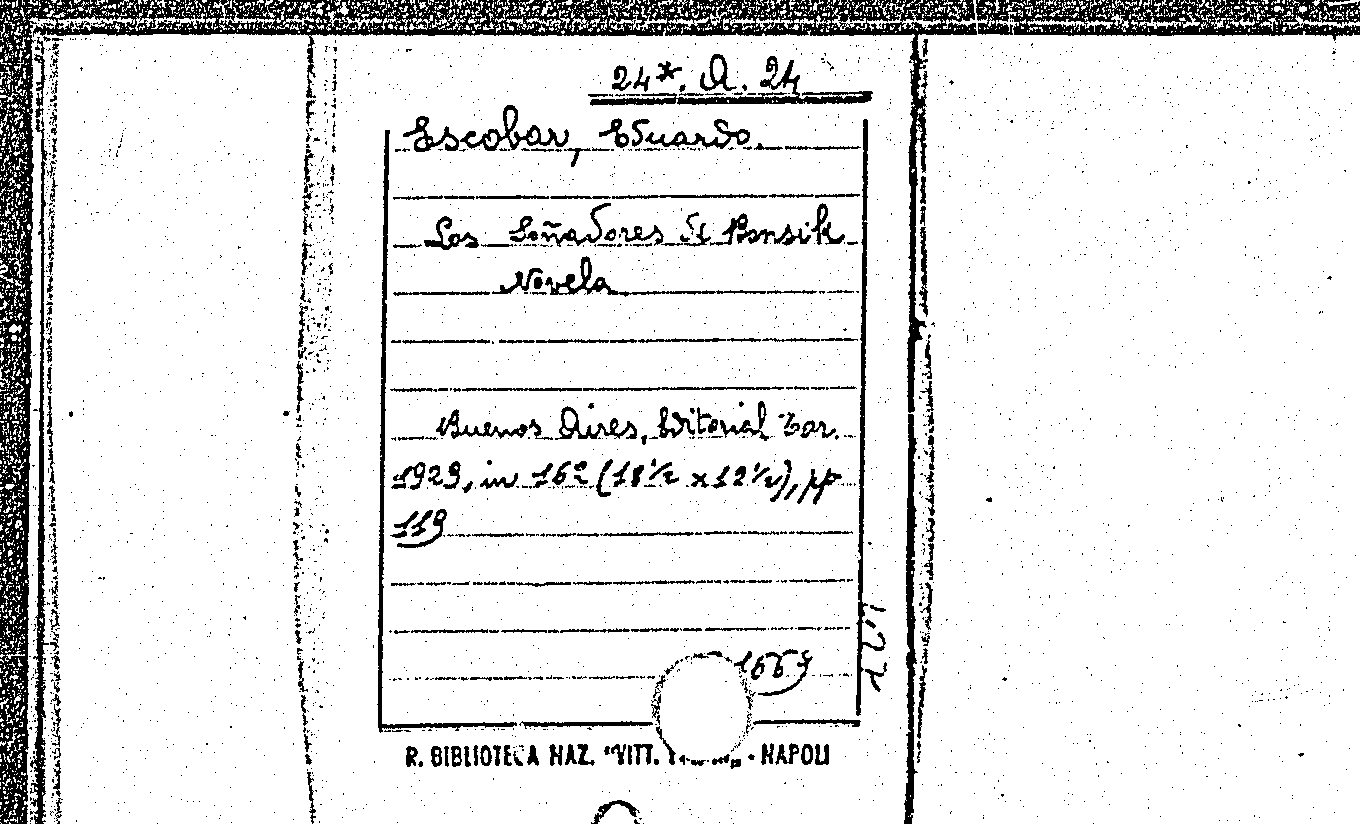 24*. A. 24
Escobar, Eduardo.
Los Soñadores de
Novela
Buenos Aires, Editorial Tor.
1929, in 16º (18 ½ x 12 ½), pp
119
R. BIBLIOTECA NAZ. "VITT. - NAPOLI